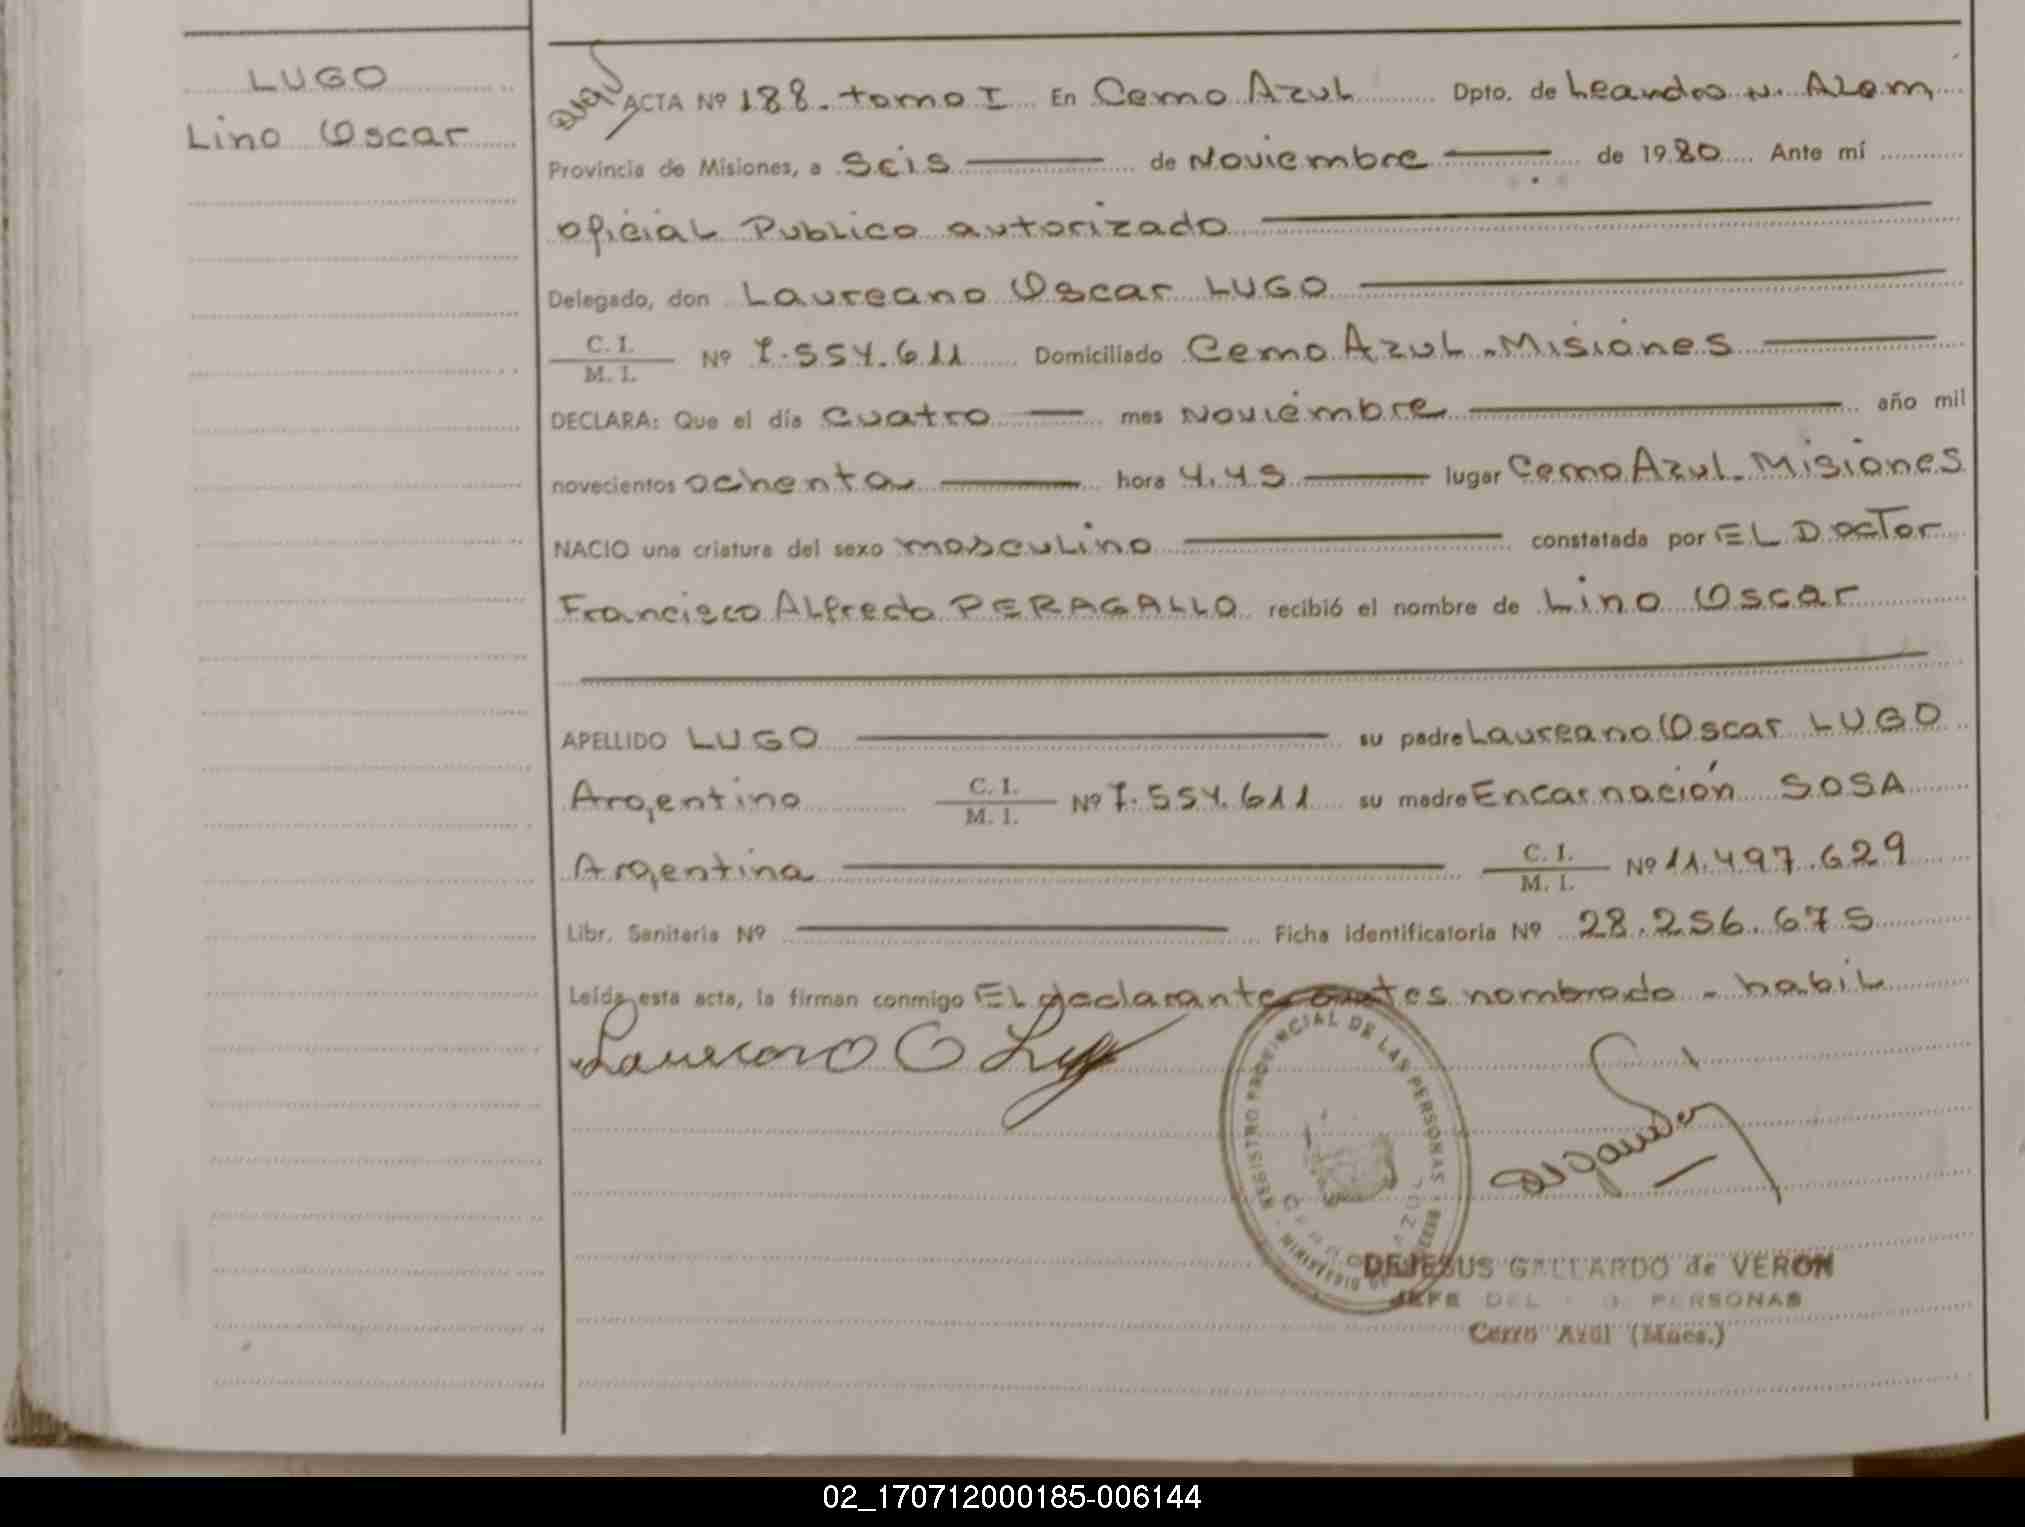 LUGO
Lino Oscar
ACTA Nº 188. tomo I En Cerro Azul Dpto. de Leandro N. Alem
Provincia de Misiones, a Seis de Noviembre de 1980 Ante mí
oficial Publico autorizado
Delegado, don Laureano Oscar LUGO
C. I.
M. I.
Nº 7.554.611 Domiciliado Cerro Azul - Misiones
DECLARA: Que el día cuatro mes Noviembre año mil
novecientos ochenta hora 4.45 lugar Cerro Azul - Misiones
NACIO una criatura del sexo masculino constatada por EL Doctor
Francisco Alfredo PERAGALLO recibió el nombre de Lino Oscar
APELLIDO LUGO su padre Laureano Oscar LUGO
Argentino C. I.
M. I.
Nº 7.554.611 su madre Encarnación SOSA
Argentina C. I.
M. I.
Nº 11.497.629
Libr. Sanitaria Nº Ficha identificatoria Nº 28.256.675
Leída esta acta, la firman conmigo EL declarante antes nombrado - habil
Laureano O L
REGISTRO PROVINCIAL DE LAS PERSONAS
DEJESUS GALLARDO de VERON
JEFE DEL PERSONAS
Cerro Azul (Mnes.)
02_170712000185-006144